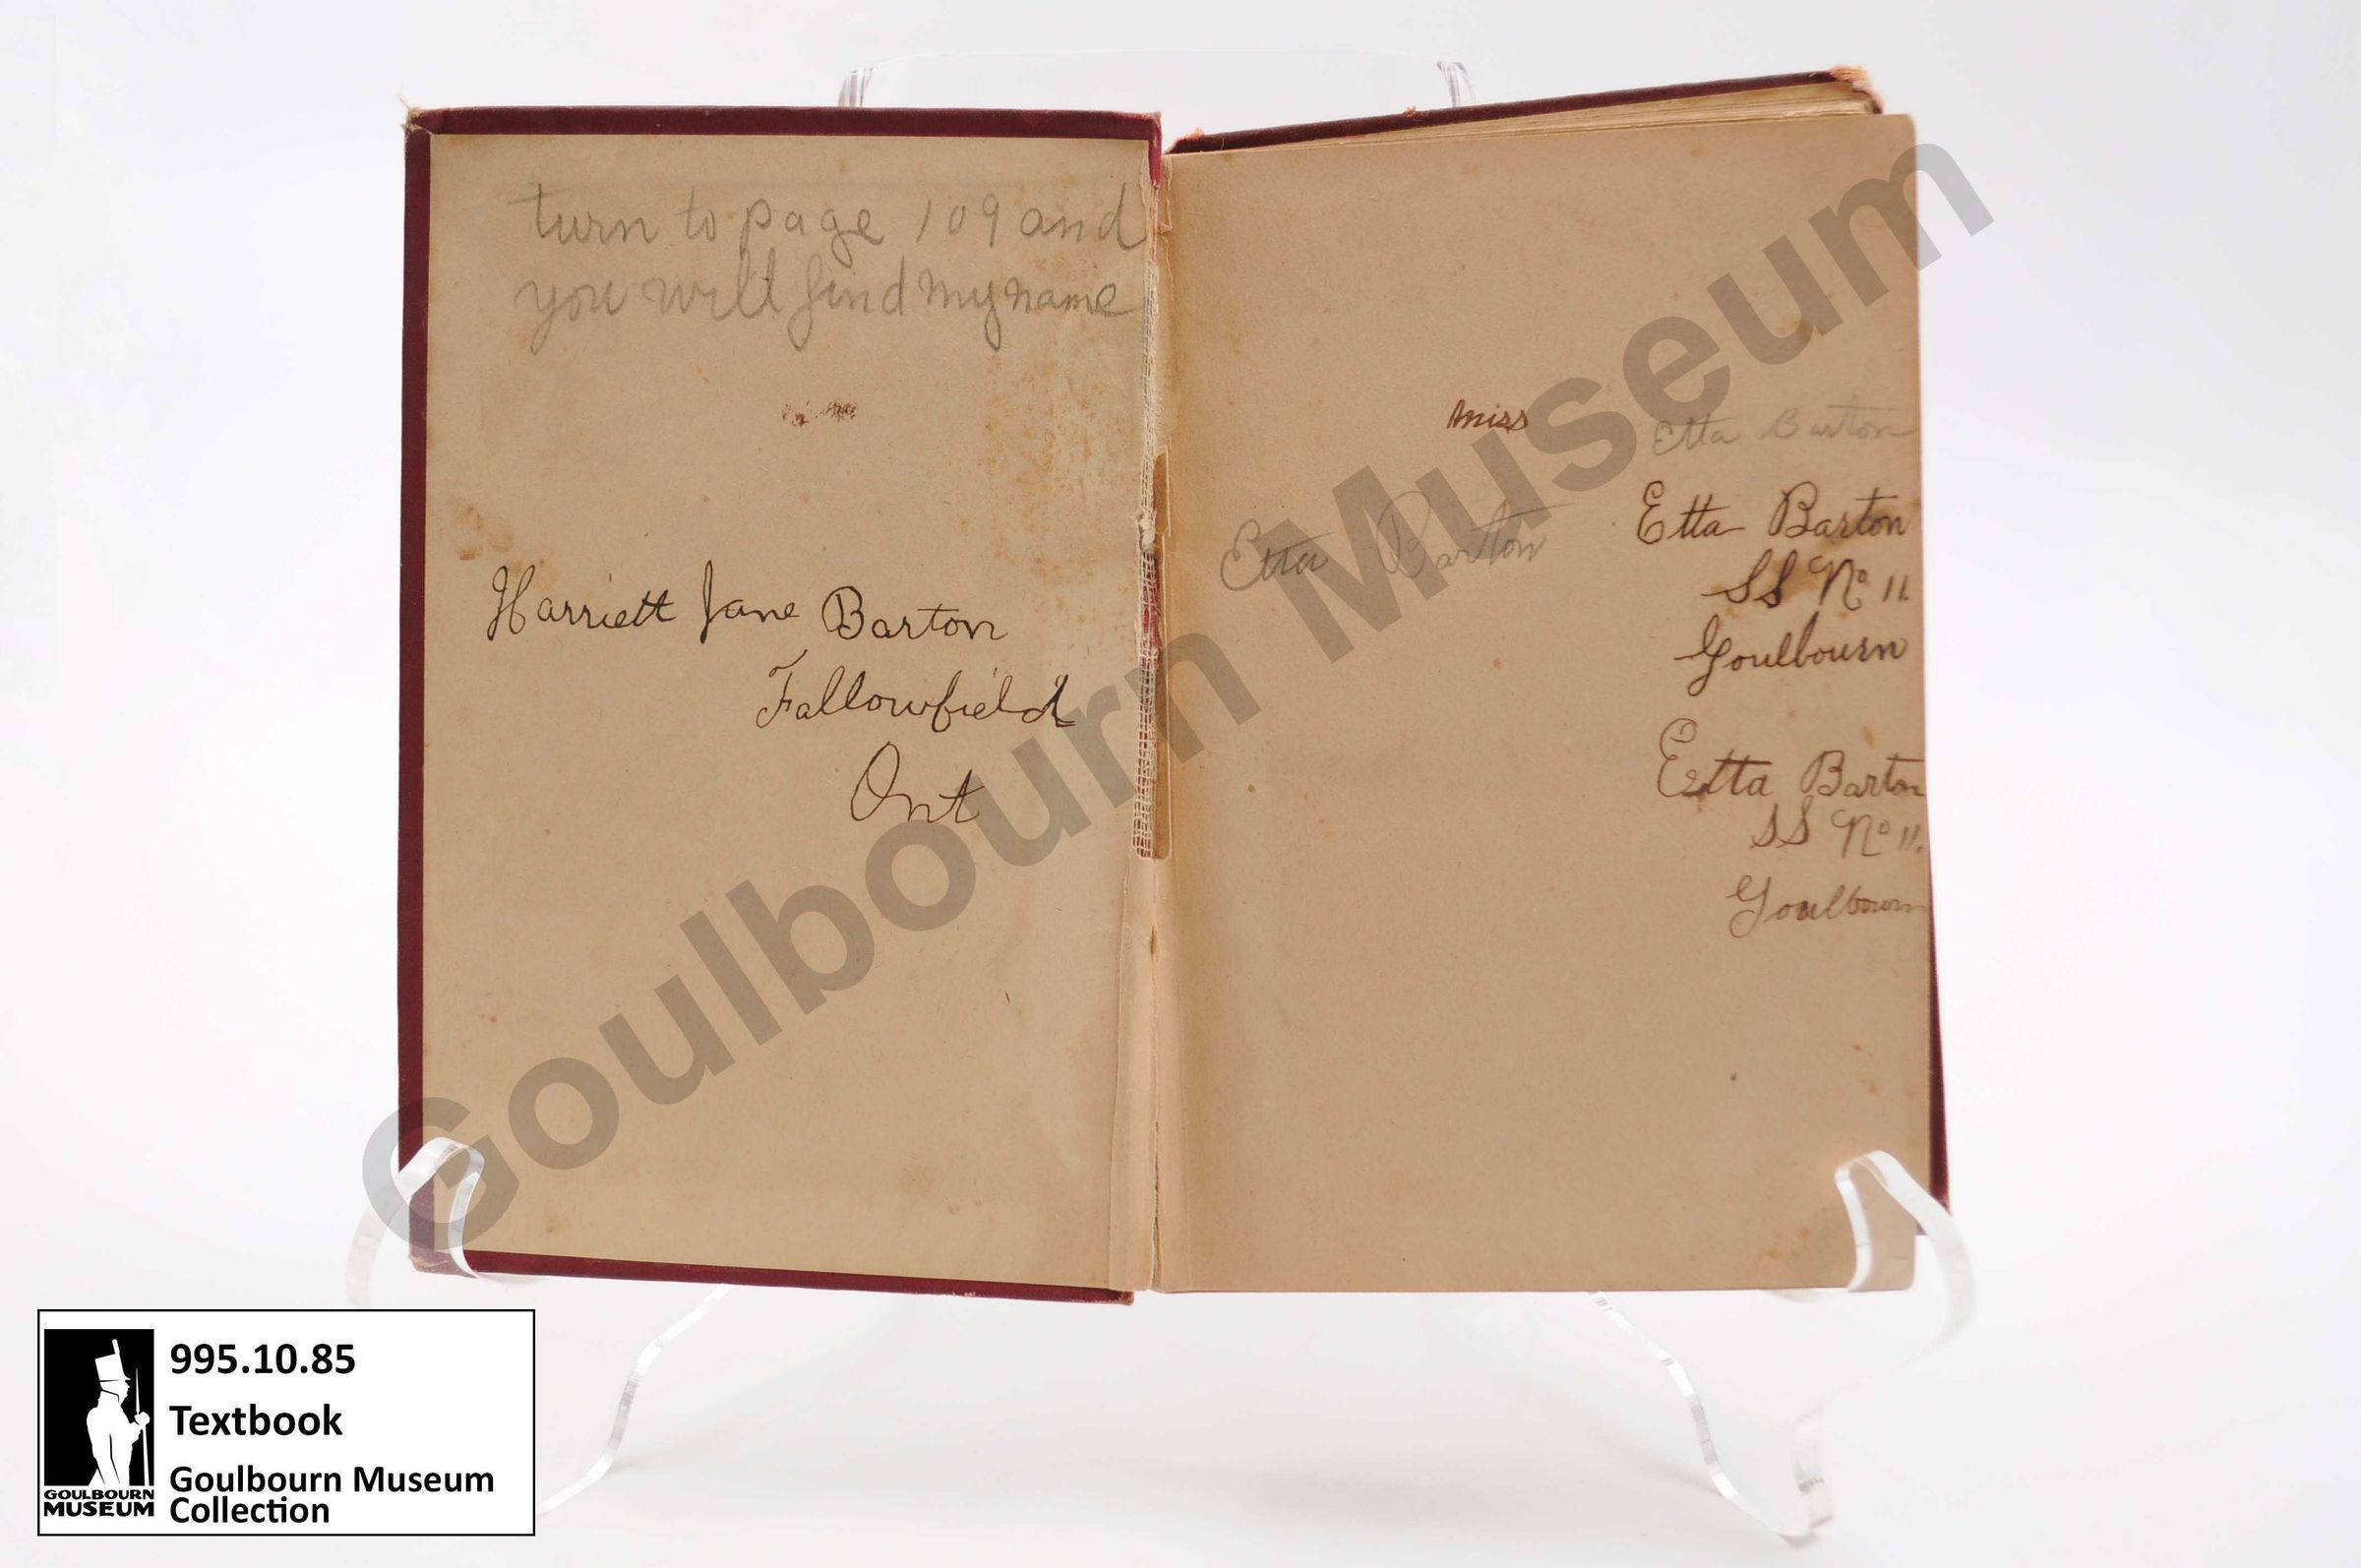 turn to page 109 and
you will find my name
Harriett Jane Barton
Fallowfield
Ont
miss
Etta Barton
Etta Barton
Etta Barton
SS No 11
Goulbourn
Etta Barton
SS No 11.
Goulbourn
Goulbourn Museum
995.10.85
Textbook
Goulbourn Museum
Collection
GOULBOURN
MUSEUM